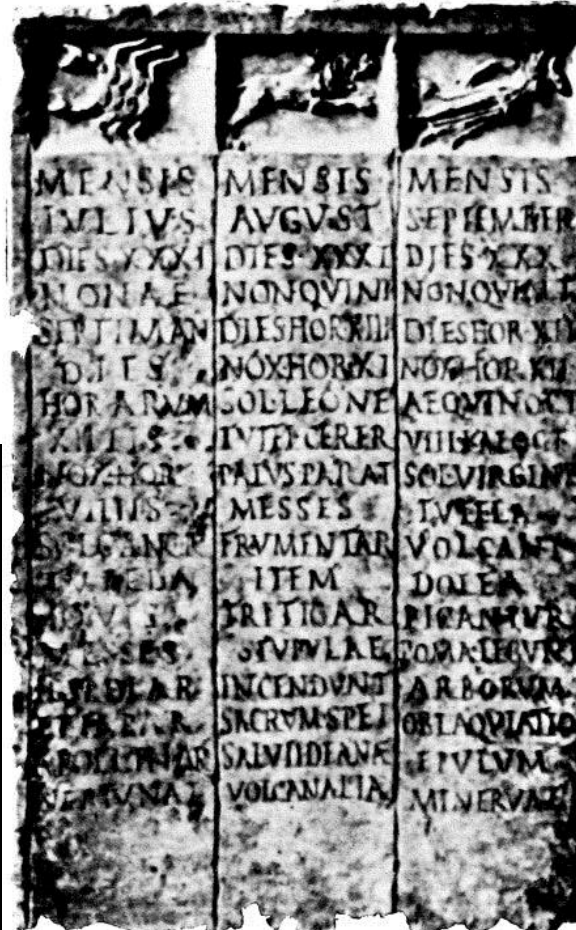 MENSIS
IVLIVS
DIES·XXXI
NONAE
SEPTIMAN
DIES
HORARUM
XIIIIS
NOX·HOR
VIIIIS
MESSES
APOLLINAR
NEPTUNAL
MENSIS
AVGVST
DIES·XXXI
NONQVINT
DIESHOR·XIII
NOX·HOR·XI
SOL·LEONE
TVTEL·CERER
PALVSPARAT
MESSES
FRVMENTAR
ITEM
TRITICAR
STVPVLAE
INCENDVNT
SACRVM·SPEI
SALVTIDIANAE
VOLCANALIA
MENSIS
SEPTEMBER
DIES·XXX
NONQVINT
DIESHOR·XII
NOX·HOR·XII
AEQVINOCT
VIIIKALOCT
SOLVIRGINE
TVTELA
VOLCANI
DOLEA
PICANTVR
POMA·LEGVNT
ARBORVM
OBLAQVIATIO
EPVLVM
MINERVAE